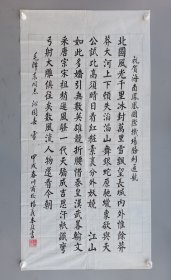 祝賀海南鳳凰國際機場勝利通航
北國風光千里冰封萬里雪飄望長城內外惟餘莽
莽大河上下頓失滔滔山舞銀蛇原馳蠟象欲與天
公試比高須晴日看紅裝素裹分外妖嬈 江山
如此多嬌引無數英雄競折腰惜秦皇漢武略輸文
采唐宗宋祖稍遜風騷一代天驕成吉思汗祇識彎
弓射大雕俱往矣數風流人物還看今朝
毛澤東同志 沁園春 雪
甲戌春